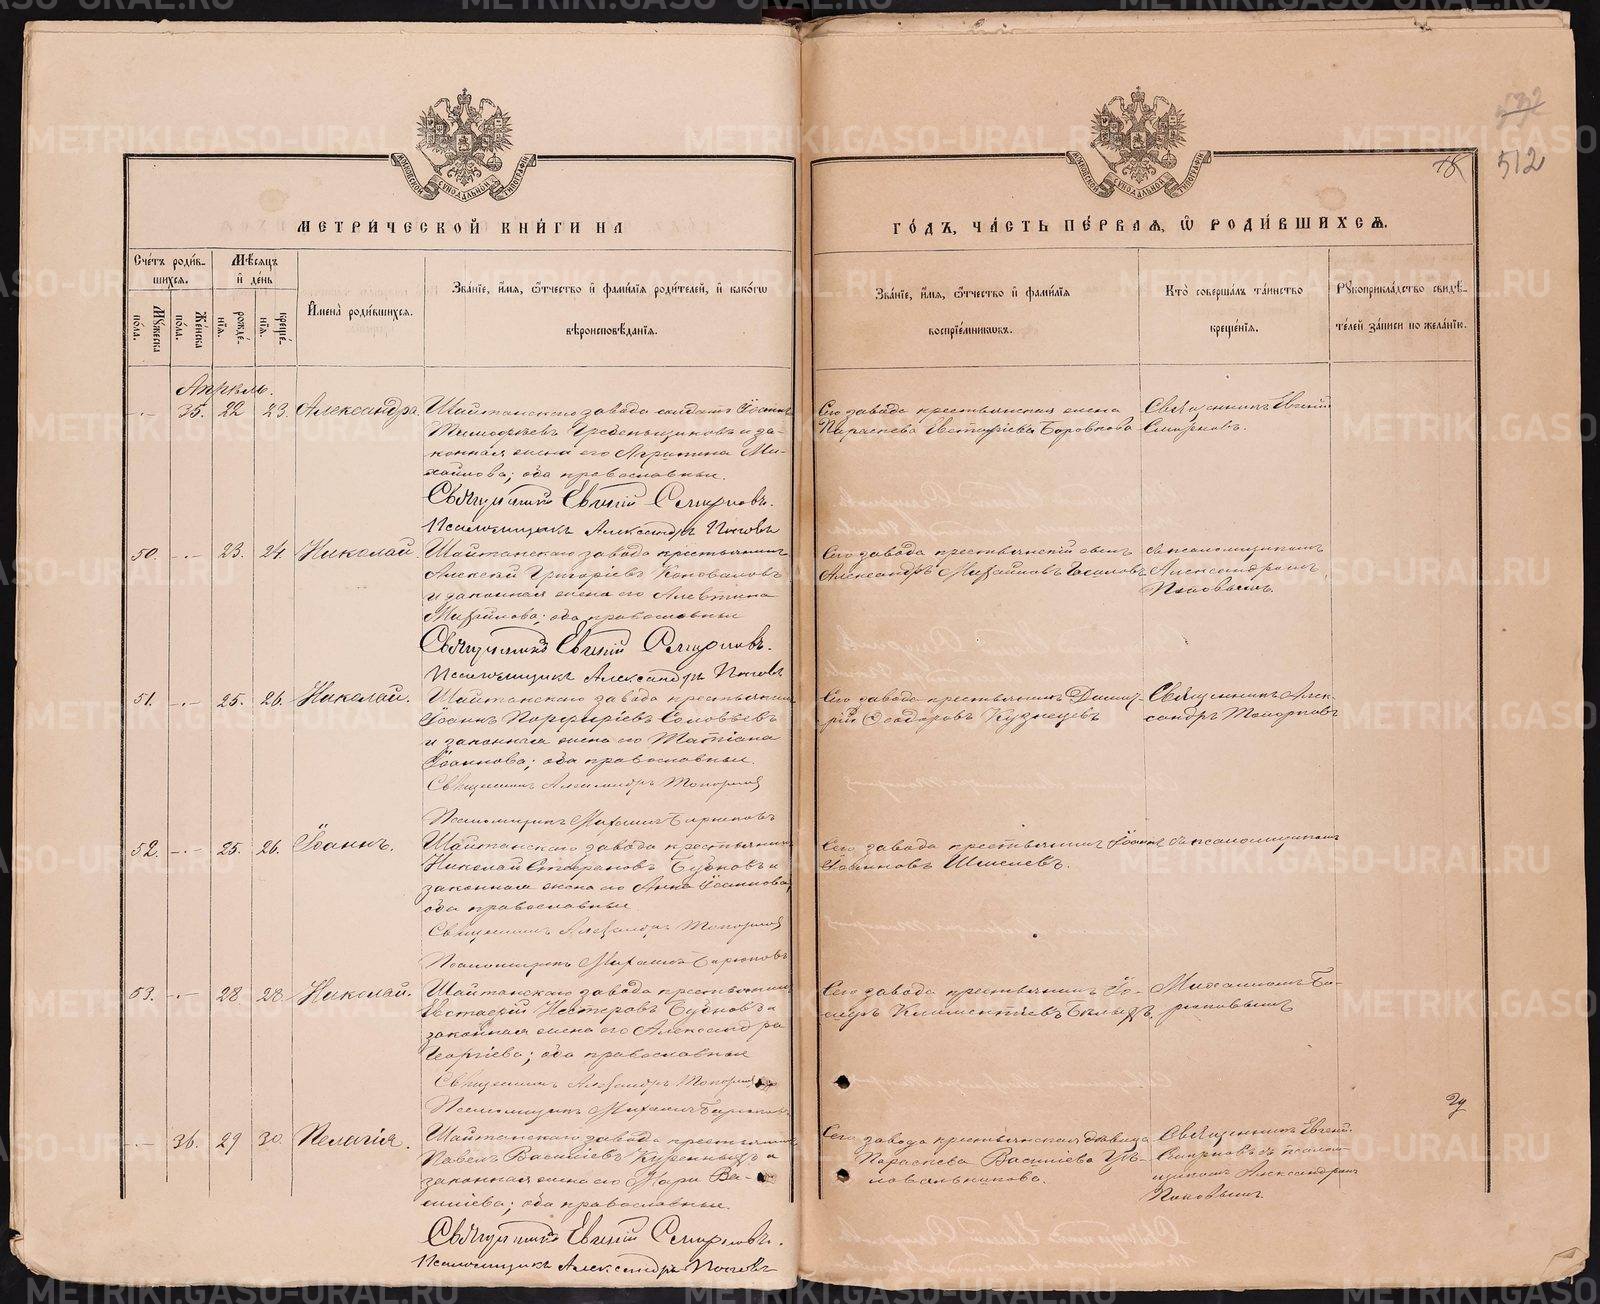 МЕТРИ́ЧЕСКОЙ КНИ́ГИ НА
ГО́ДЪ, ЧА́СТЬ ПЕ́РВАѦ, Ѽ РОДИ́ВШИХСѦ.
572
512
Сче́тъ роди́в-
шихсѧ.
Мꙋ́жеска по́ла.
Же́нска по́ла.
Мѣ́сѧцъ
и҆ де́нь
рожде́-
нїѧ.
креще́-
нїѧ.
И҆мена̀ роди́вшихсѧ.
Зва́нїе, и҆́мѧ, ѻ҆́тчество и҆ фами́лїѧ роди́телей, и҆ како́гѡ
вѣроисповѣ́данїѧ.
Зва́нїе, и҆́мѧ, ѻ҆́тчество и҆ фами́лїѧ
воспрїе́мникѡвъ.
Кто̀ соверша́лъ та́инство
креще́нїѧ.
Рꙋкоприкла́дство свидѣ́-
телей за́писи по жела́нїю.
Апрѣль.
35. 22 23. Александра.
Шайтанскаго завода солдатъ Іоаннъ
Тимофѣевъ Гребеньщиковъ и за-
конная жена его Агрипина Ми-
хайлова; оба православные.
Священникъ Евгеній Смирновъ.
Псаломщикъ Александръ Поповъ
Сего завода крестьянская жена
Параскева Боровкова
Священникъ Евгеній
Смирновъ.
50. 23. 24. Николай.
Шайтанскаго завода крестьянинъ
Алексѣй Григоріевъ Коноваловъ
и законная жена его Алевтина
Михайлова; оба православные
Священникъ Евгеній Смирновъ.
Псаломщикъ Александръ Поповъ
Сего завода крестьянскій сынъ
Александръ Михайловъ
съ псаломщикомъ
Александромъ
Поповымъ.
51. 25. 26. Николай.
Шайтанскаго завода крестьянинъ
Іоаннъ Порфиріевъ Соловьевъ
и законная жена его Татіана
Іоаннова; оба православные.
Священникъ Александръ Топорковъ
Псаломщикъ Михаилъ Бирюковъ
Сего завода крестьянинъ Димит-
рій Ѳеодоровъ Кузнецовъ
Священникъ Алек-
сандръ Топорковъ
52. 25. 26. Іоаннъ.
Шайтанскаго завода крестьянинъ
Николай Стефановъ Будковъ и
законная жена его Анна Іоаннова;
оба православные
Священникъ Александръ Топорковъ
Псаломщикъ Михаилъ Бирюковъ
Сего завода крестьянинъ Іоаннъ
Іоанновъ
съ псаломщикомъ
53. 28. 28 Николай.
Шайтанскаго завода крестьянинъ
Евстафій Несторовъ Будковъ и
законная жена его Александра
Георгіева; оба православные
Священникъ Александръ Топорковъ
Псаломщикъ Михаилъ Бирюковъ
Сего завода крестьянинъ Іо-
сифъ Климентіевъ Бѣлыхъ.
Михаиломъ Би-
рюковымъ
36. 29 30. Пелагія.
Шайтанскаго завода крестьянинъ
Павелъ Василіевъ Куренныхъ и
законная жена его Ва-
силіева; оба православные.
Священникъ Евгеній Смирновъ.
Псаломщикъ Александръ Поповъ
Сего завода крестьянская дѣвица
Параскева Василіева Цѣ-
ловальникова.
Священникъ Евгеній
Смирновъ съ псалом-
щикомъ Александромъ
Поповымъ.
METRIKI.GASO-URAL.RU